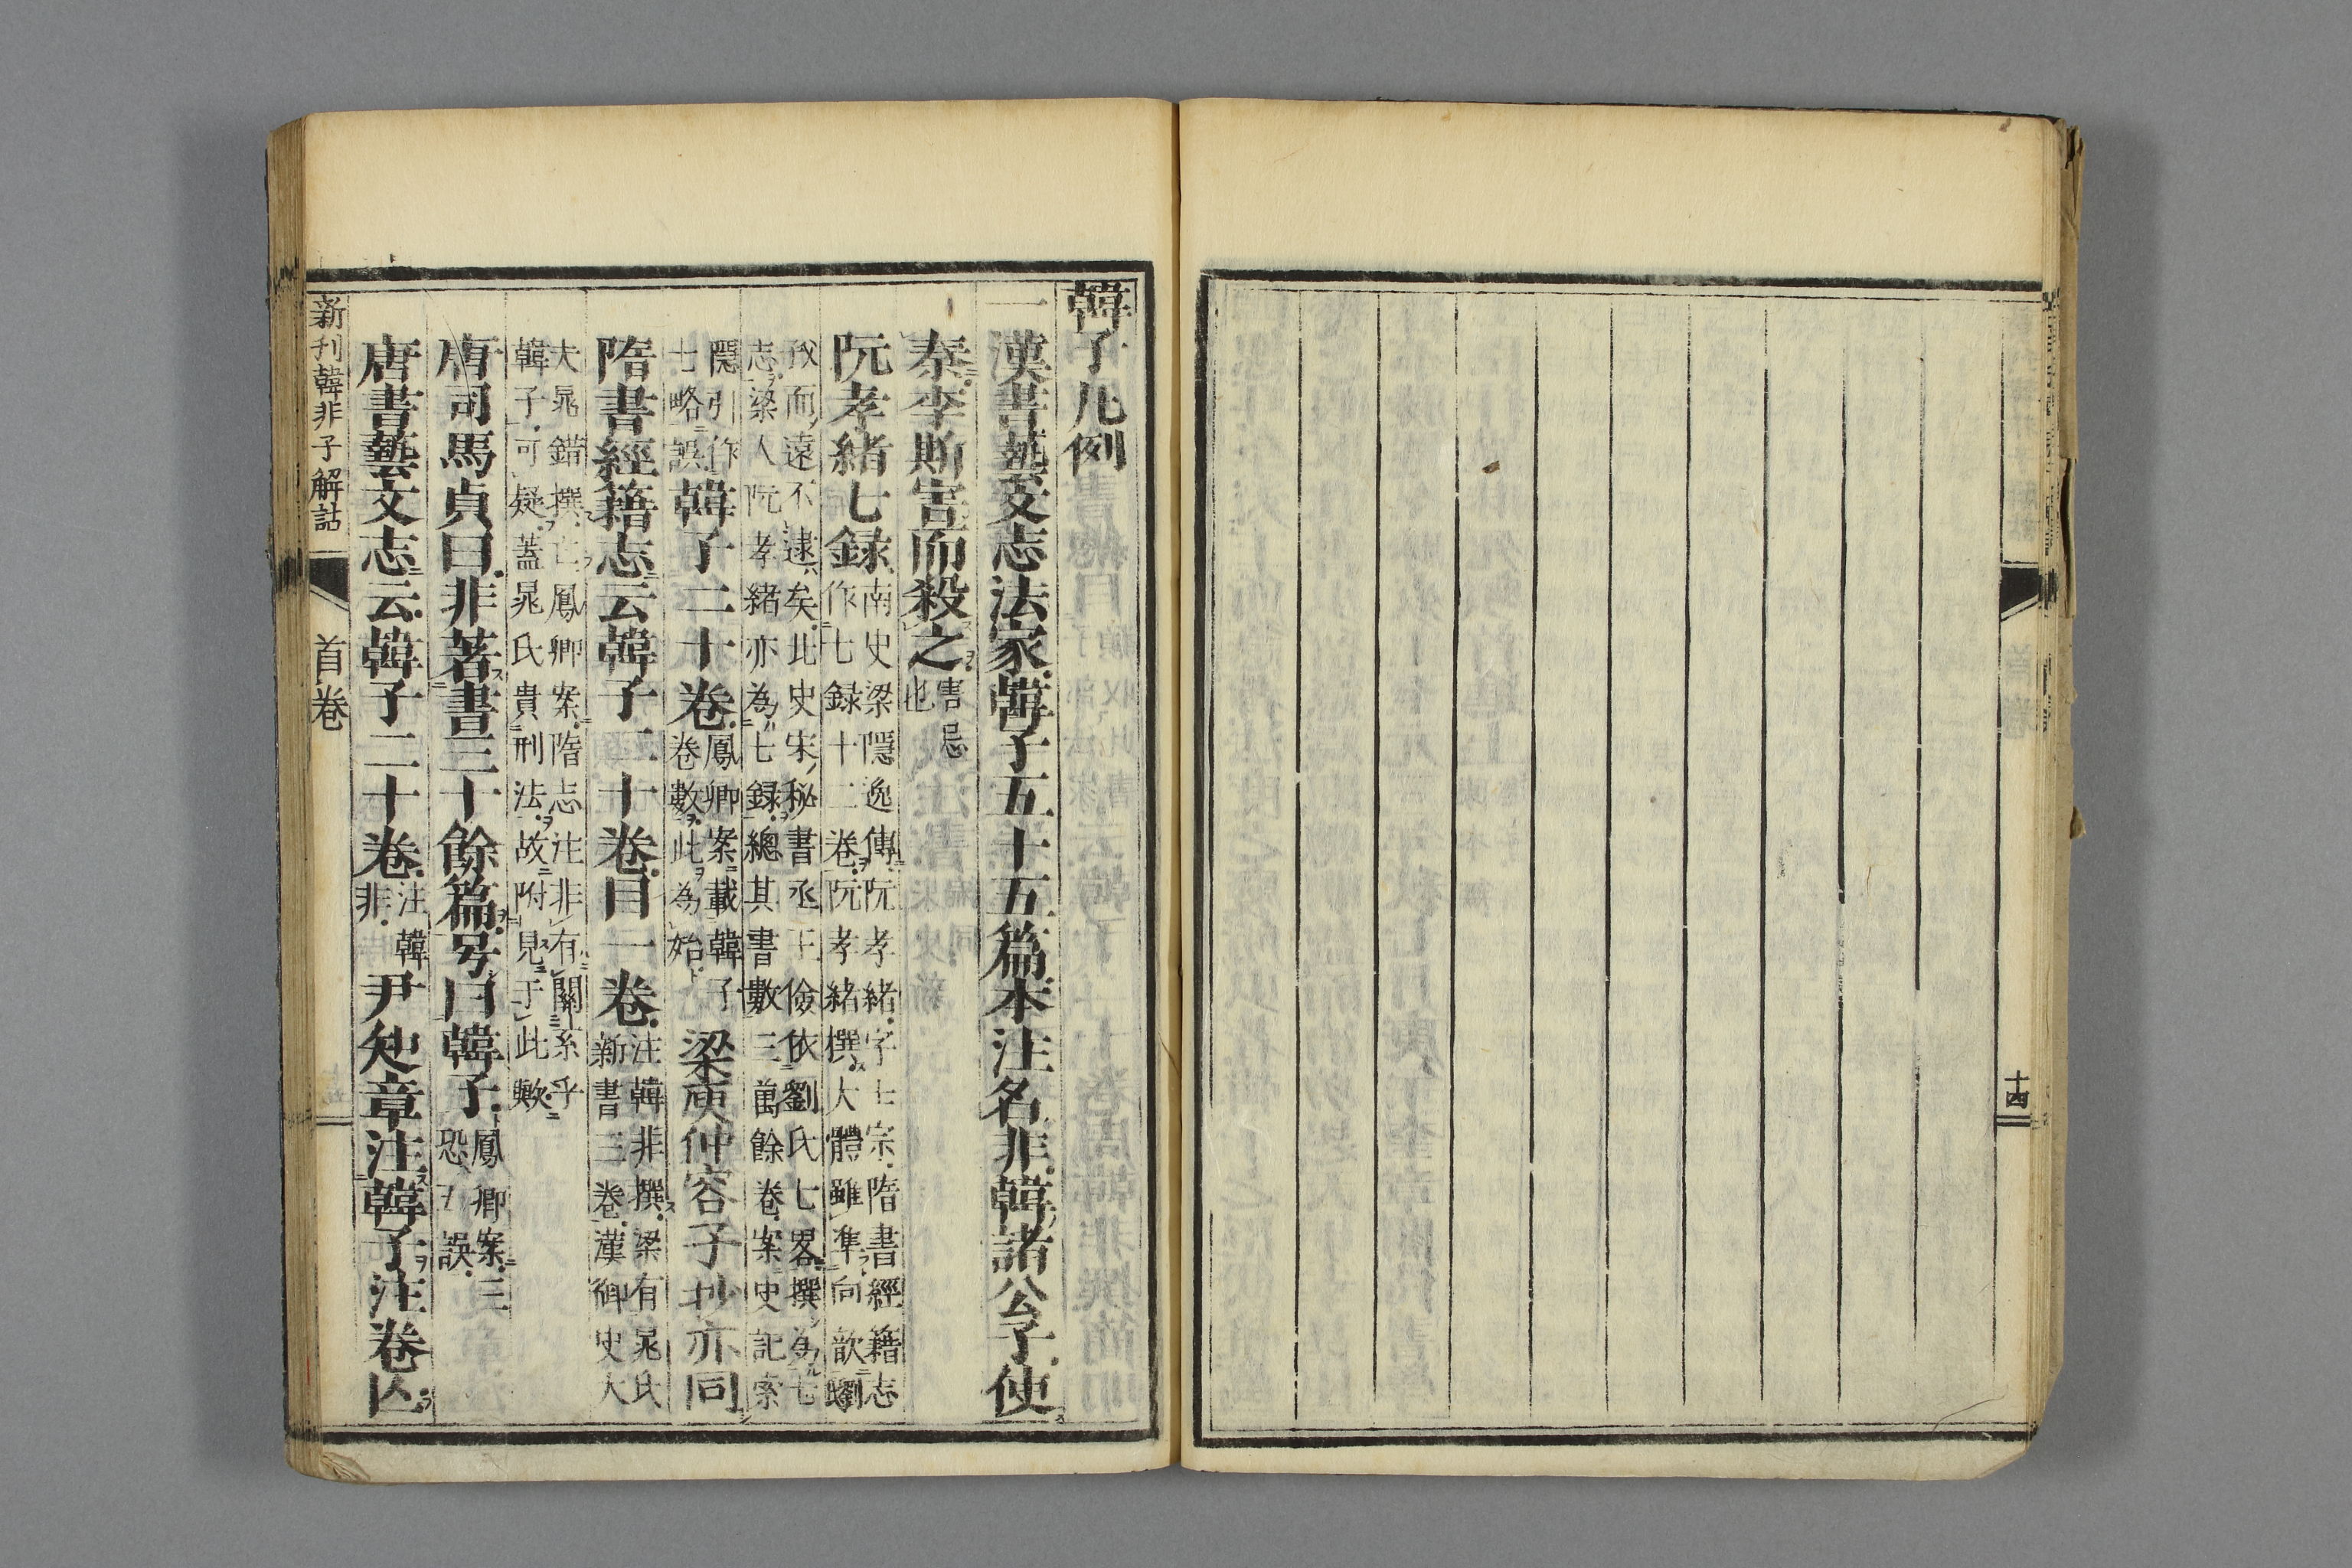 十四
韓子凡例
一漢書藝文志法家韓子五十五篇本注名非韓諸公子使
秦李斯害而殺之害忌
也
阮孝緒七録南史梁隱逸傳阮孝緒字士宗隋書經籍志
作七録十二卷阮孝緒撰大體雖準向歆劉
而遠不逮矣此史宋秘書丞王儉依劉氏七畧撰為七
志梁人阮孝緒亦為七録總其書數三萬餘卷案史記索
隱引作
七略誤韓子二十卷鳳卿案載韓子
卷數此為始梁庾仲容子抄亦同
隋書經籍志云韓子二十卷目一卷注韓非撰梁有晁氏
新書三卷漢御史大
夫晁錯撰亡鳳卿案隋志注非有關系乎
韓子可疑蓋晁氏貴刑法故附見于此歟
唐司馬貞曰非著書三十餘篇号曰韓子鳳卿案三
恐五誤
唐書藝文志云韓子二十卷注韓
非尹知章注韓子注卷亾
新刊韓非子解詁 首卷